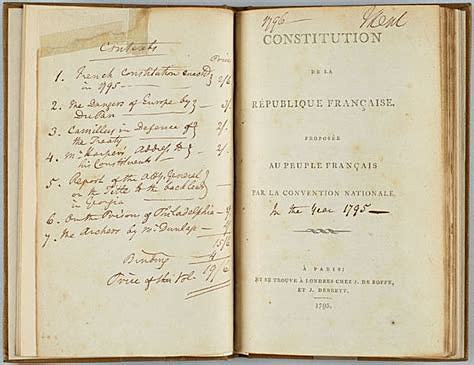 Contents
Price
1. French Constitution enacted
in 1795 — 2/6
2. The Dangers of Europe by
3. Camillus in Defence of
the Treaty 2/.
4. Mr Harpers Address to
his Constituents 2/.
5. Report of the Atty General
on the Title to the back lands
in Georgia
6. On the Prison of Philadelphia
7. The Archers by Mr Dunlap
15/6
Binding 4
Price of this Vol. 19/6
1796 — Kent
CONSTITUTION
DE LA
RÉPUBLIQUE FRANÇAISE,
PROPOSÉE
AU PEUPLE FRANÇAIS
PAR LA CONVENTION NATIONALE.
In the Year 1795 —
À PARIS:
ET SE TROUVE À LONDRES CHEZ J. DE BOFFE,
ET J. DEBRETT.
1795.